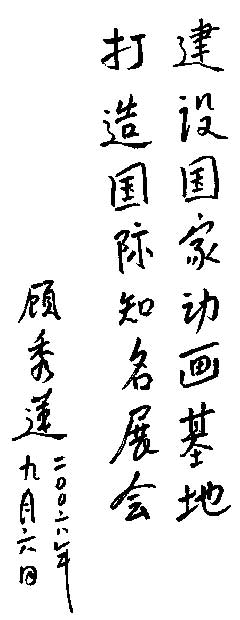 建设国家动画基地
打造国际知名展会
顾秀莲
二〇〇六年
九月六日